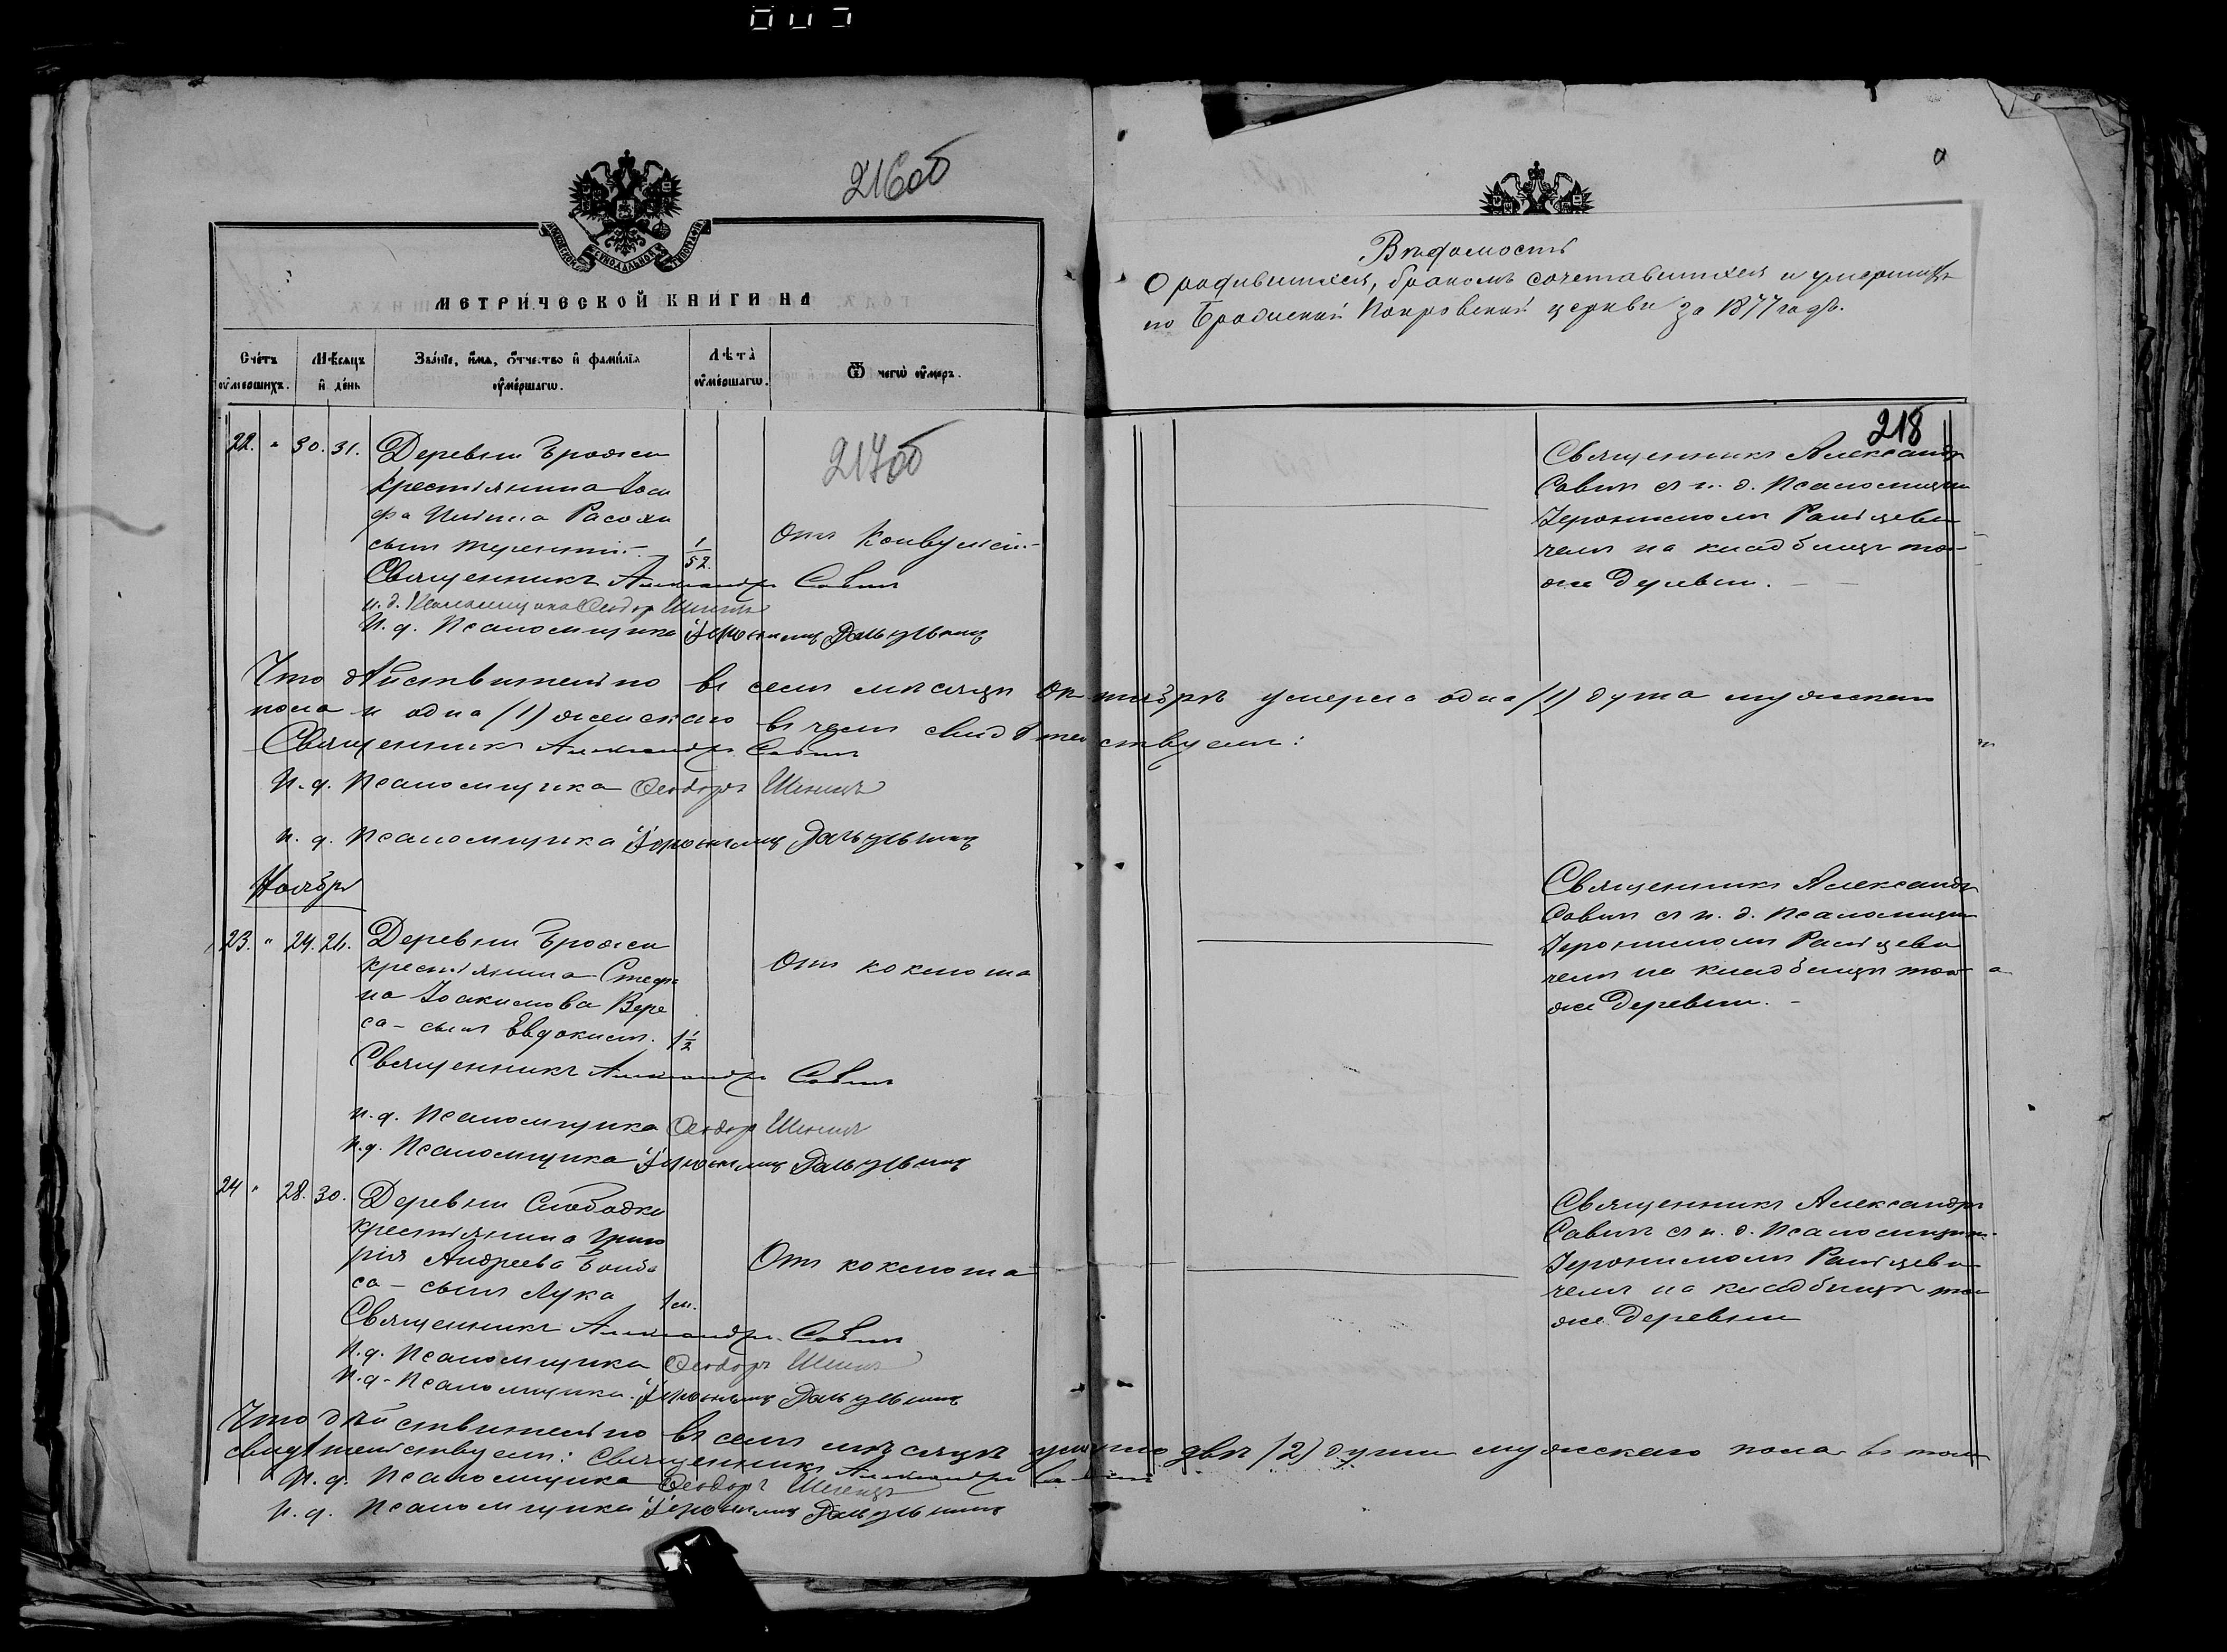 216 об
МОСКОВСКОЙ СѴНОДАЛЬНОЙ ТИПОГРАФІИ
МЕТРИЧЕСКОЙ КНИГИ НА
Счетъ оумершихъ.
Мѣсяцъ и день
Званїе, имя, отчество и фамилїя оумершагѡ.
Лѣта оумершагѡ.
Ѿ чегѡ оумеръ.
217 об
22. " 30. 31. Деревни Брожи
крестьянина Іоси
фа Ильина Расохи
сынъ Терентій. 1/52. Отъ конвульсіи.
Священникъ Александръ Савичъ
и. д. Псаломщика Ѳеодоръ
И. д. Псаломщика Іеронимъ
Что дѣйствительно въ семъ мѣсяцѣ Октябрѣ умерла одна (1) душа мужскаго
пола и одна (1) женскаго въ чемъ свидѣтельствуемъ:
Священникъ Александръ Савичъ
И. д. Псаломщика Ѳеодоръ
И. д. Псаломщика Іеронимъ
Ноябрь
23. " 24. 26. Деревни Брожи
крестьянина Стефа
на Іоакимова Вере
са – сынъ Евдокимъ. 1 1/2 Отъ коклюша
Священникъ Александръ Савичъ
И. д. Псаломщика Ѳеодоръ
И. д. Псаломщика Іеронимъ
24 " 28. 30. Деревни Слободки
крестьянина Григо
рія Андреева
са – сынъ Лука 1 м. Отъ коклюша
Священникъ Александръ Савичъ
И. д. Псаломщика Ѳеодоръ
И. д. Псаломщика Іеронимъ
Что дѣйствительно въ семъ мѣсяцѣ умерло двѣ (2) души мужскаго пола въ томъ
свидѣтельствуемъ: Священникъ Александръ Савичъ
И. д. Псаломщика Ѳеодоръ
И. д. Псаломщика Іеронимъ
Вѣдомость
О родившихся, бракомъ сочетавшихся и умершихъ
по Бродской Покровской церкви за 1877 годъ.
218
Священникъ Александръ
Савичъ съ и. д. Псаломщика
Іеронимомъ
чемъ на кладбищѣ той
же деревни. –
Священникъ Александръ
Савичъ съ и. д. Псаломщика
Іеронимомъ
чемъ на кладбищѣ той
же деревни. –
Священникъ Александръ
Савичъ съ и. д. Псаломщика
Іеронимомъ
чемъ на кладбищѣ той
же деревни